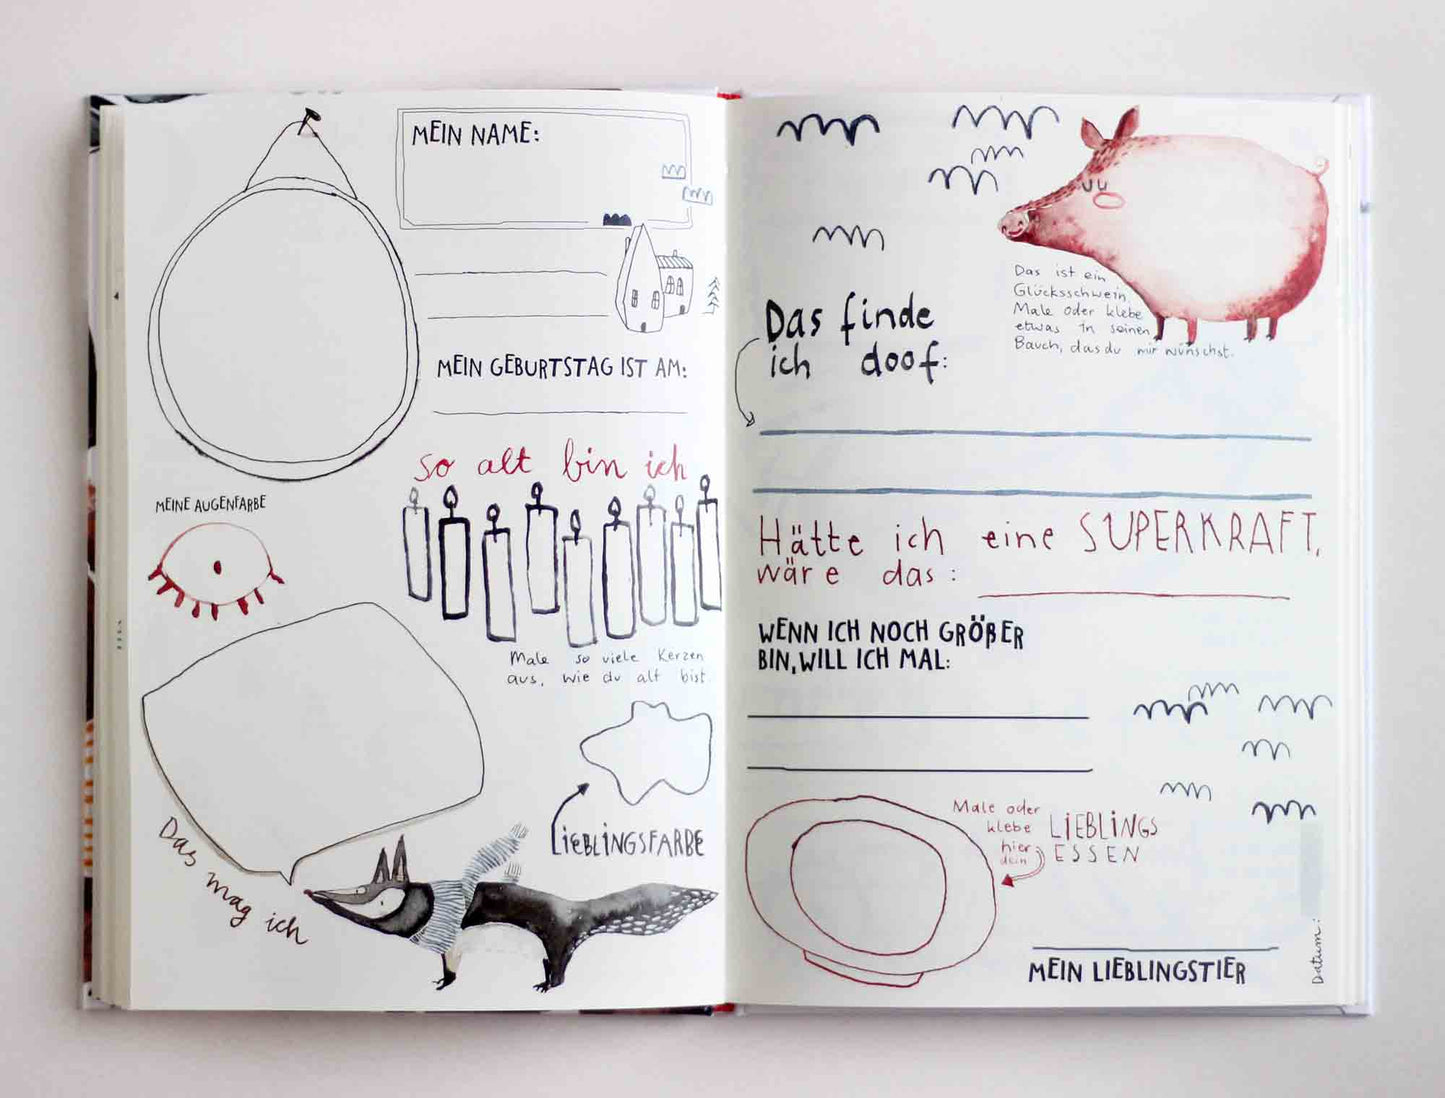 MEIN NAME:
MEIN GEBURTSTAG IST AM:
so alt bin ich
Male so viele Kerzen
aus, wie du alt bist.
MEINE AUGENFARBE
LIEBLINGSFARBE
Das mag ich
Das ist ein
Glücksschwein.
Male oder klebe
etwas in seinen
Bauch, das du mir wünschst.
Das finde
ich doof:
Hätte ich eine SUPERKRAFT,
wäre das:
WENN ICH NOCH GRÖßER
BIN, WILL ICH MAL:
Male oder
klebe
hier
dein
LIEBLINGS
ESSEN
MEIN LIEBLINGSTIER
Datum: